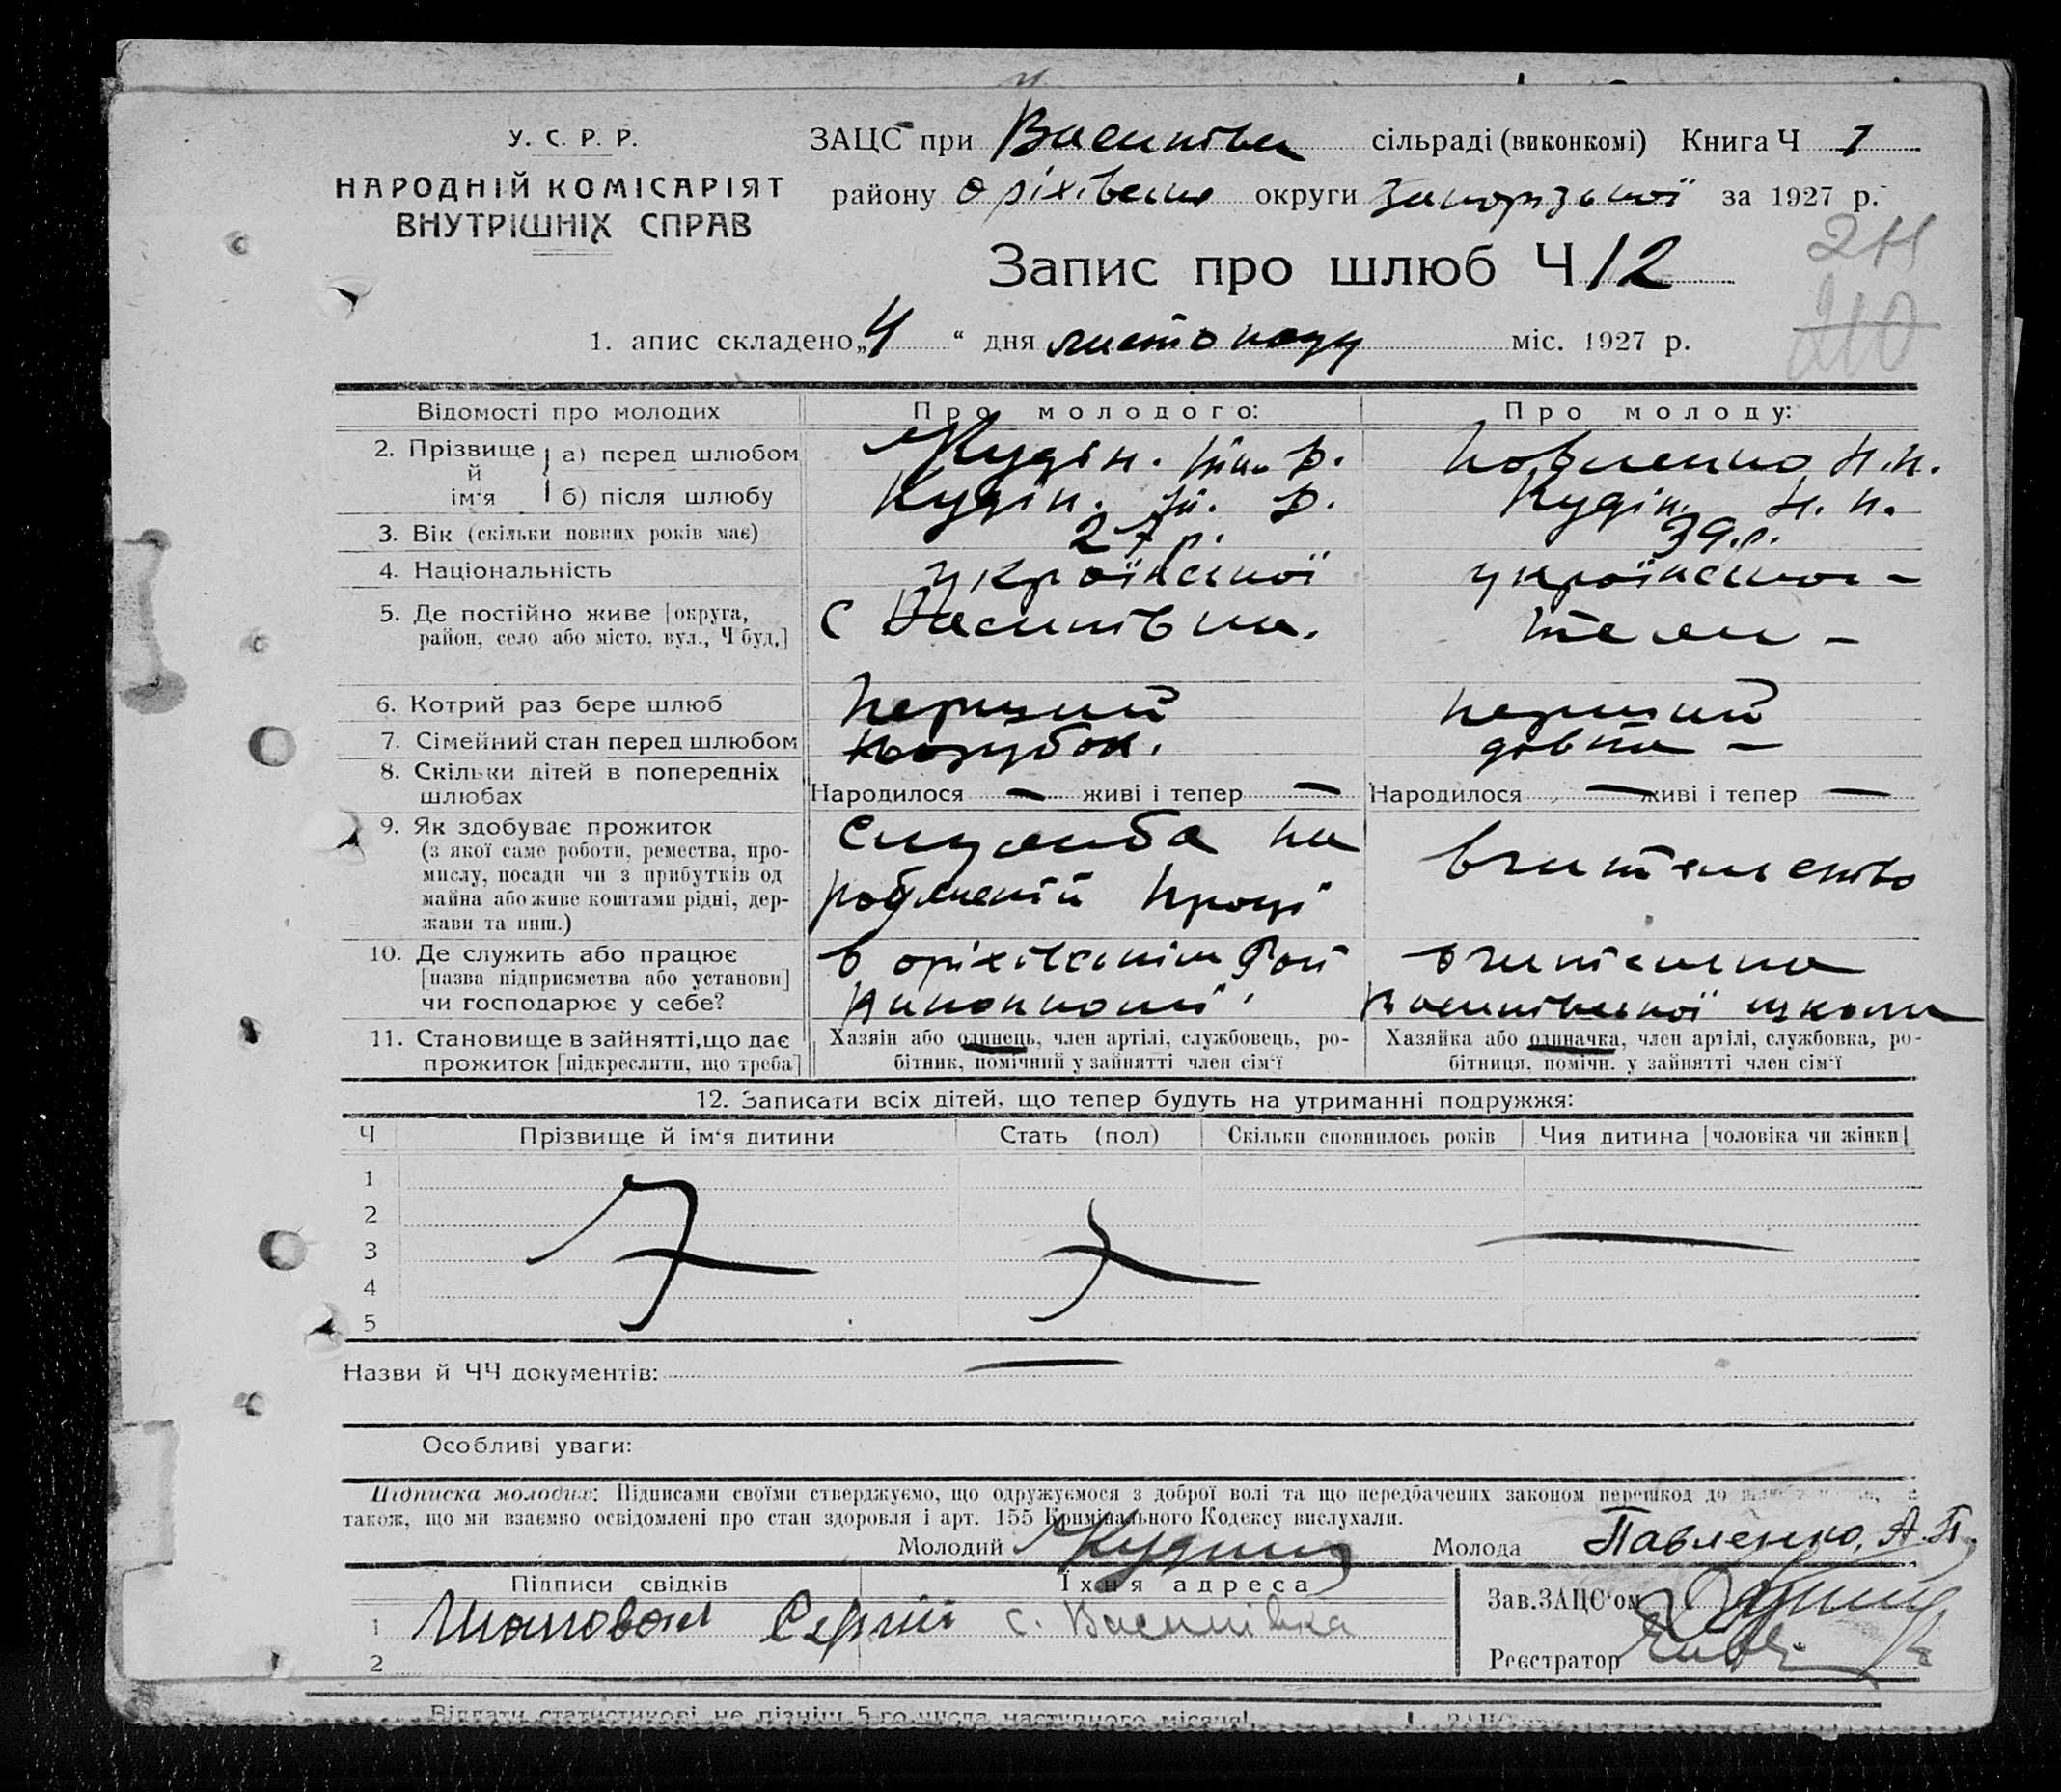 У. С. Р. Р.
НАРОДНІЙ КОМІСАРІЯТ
ВНУТРІШНІХ СПРАВ
ЗАЦС при Василівка сільраді (виконкомі) Книга Ч 1
району Оріхівськ округи Запорізької за 1927 р.
211
210
Запис про шлюб Ч 12
1. апис складено „4“ дня листопаду міс. 1927 р.
Відомості про молодих Про молодого: Про молоду:
2. Прізвище й ім‘я а) перед шлюбом Кудін. Павленко
б) після шлюбу Кудін. Кудін.
3. Вік (скільки повних років має) 27 р. 39 р.
4. Національність української української
5. Де постійно живе [округа, район, село або місто, вул., Ч буд.] с Василівка.
6. Котрий раз бере шлюб перший перший
7. Сімейний стан перед шлюбом парубок. дівка
8. Скільки дітей в попередніх шлюбах Народилося — живі і тепер — Народилося — живі і тепер —
9. Як здобуває прожиток
(з якої саме роботи, ремества, промислу, посади чи з прибутків од майна або живе коштами рідні, держави та инш.)
служба на
праці
вчительство
10. Де служить або працює
[назва підприємства або установи]
чи господарює у себе?
в оріхівським Рай
виконкомі
вчителька
Василівської школи
11. Становище в зайнятті, що дає прожиток [підкреслити, що треба]
Хазяїн або одинець, член артілі, службовець, робітник, помічний у зайнятті член сім‘ї
Хазяйка або одиначка, член артілі, службовка, робітниця, помічн. у зайнятті член сім‘ї
12. Записати всіх дітей, що тепер будуть на утриманні подружжя:
Ч Прізвище й ім‘я дитини Стать (пол) Скільки сповнилось років Чия дитина [чоловіка чи жінки]
1
2
3
4
5
Назви й ЧЧ документів: —
Особливі уваги:
Підписка молодих: Підписами своїми стверджуємо, що одружуємося з доброї волі та що передбачених законом перешкод до
також, що ми взаємно освідомлені про стан здоровля і арт. 155 Кримінального Кодексу вислухали.
Молодий Молода Павленко, А. П.
Підписи свідків Їхня адреса
1 Шаповал Сергій с. Василівка
2
Зав. ЗАЦС‘ом
Реєстратор
Віддати статистикові не пізніш 5-го числа наступного місяця!